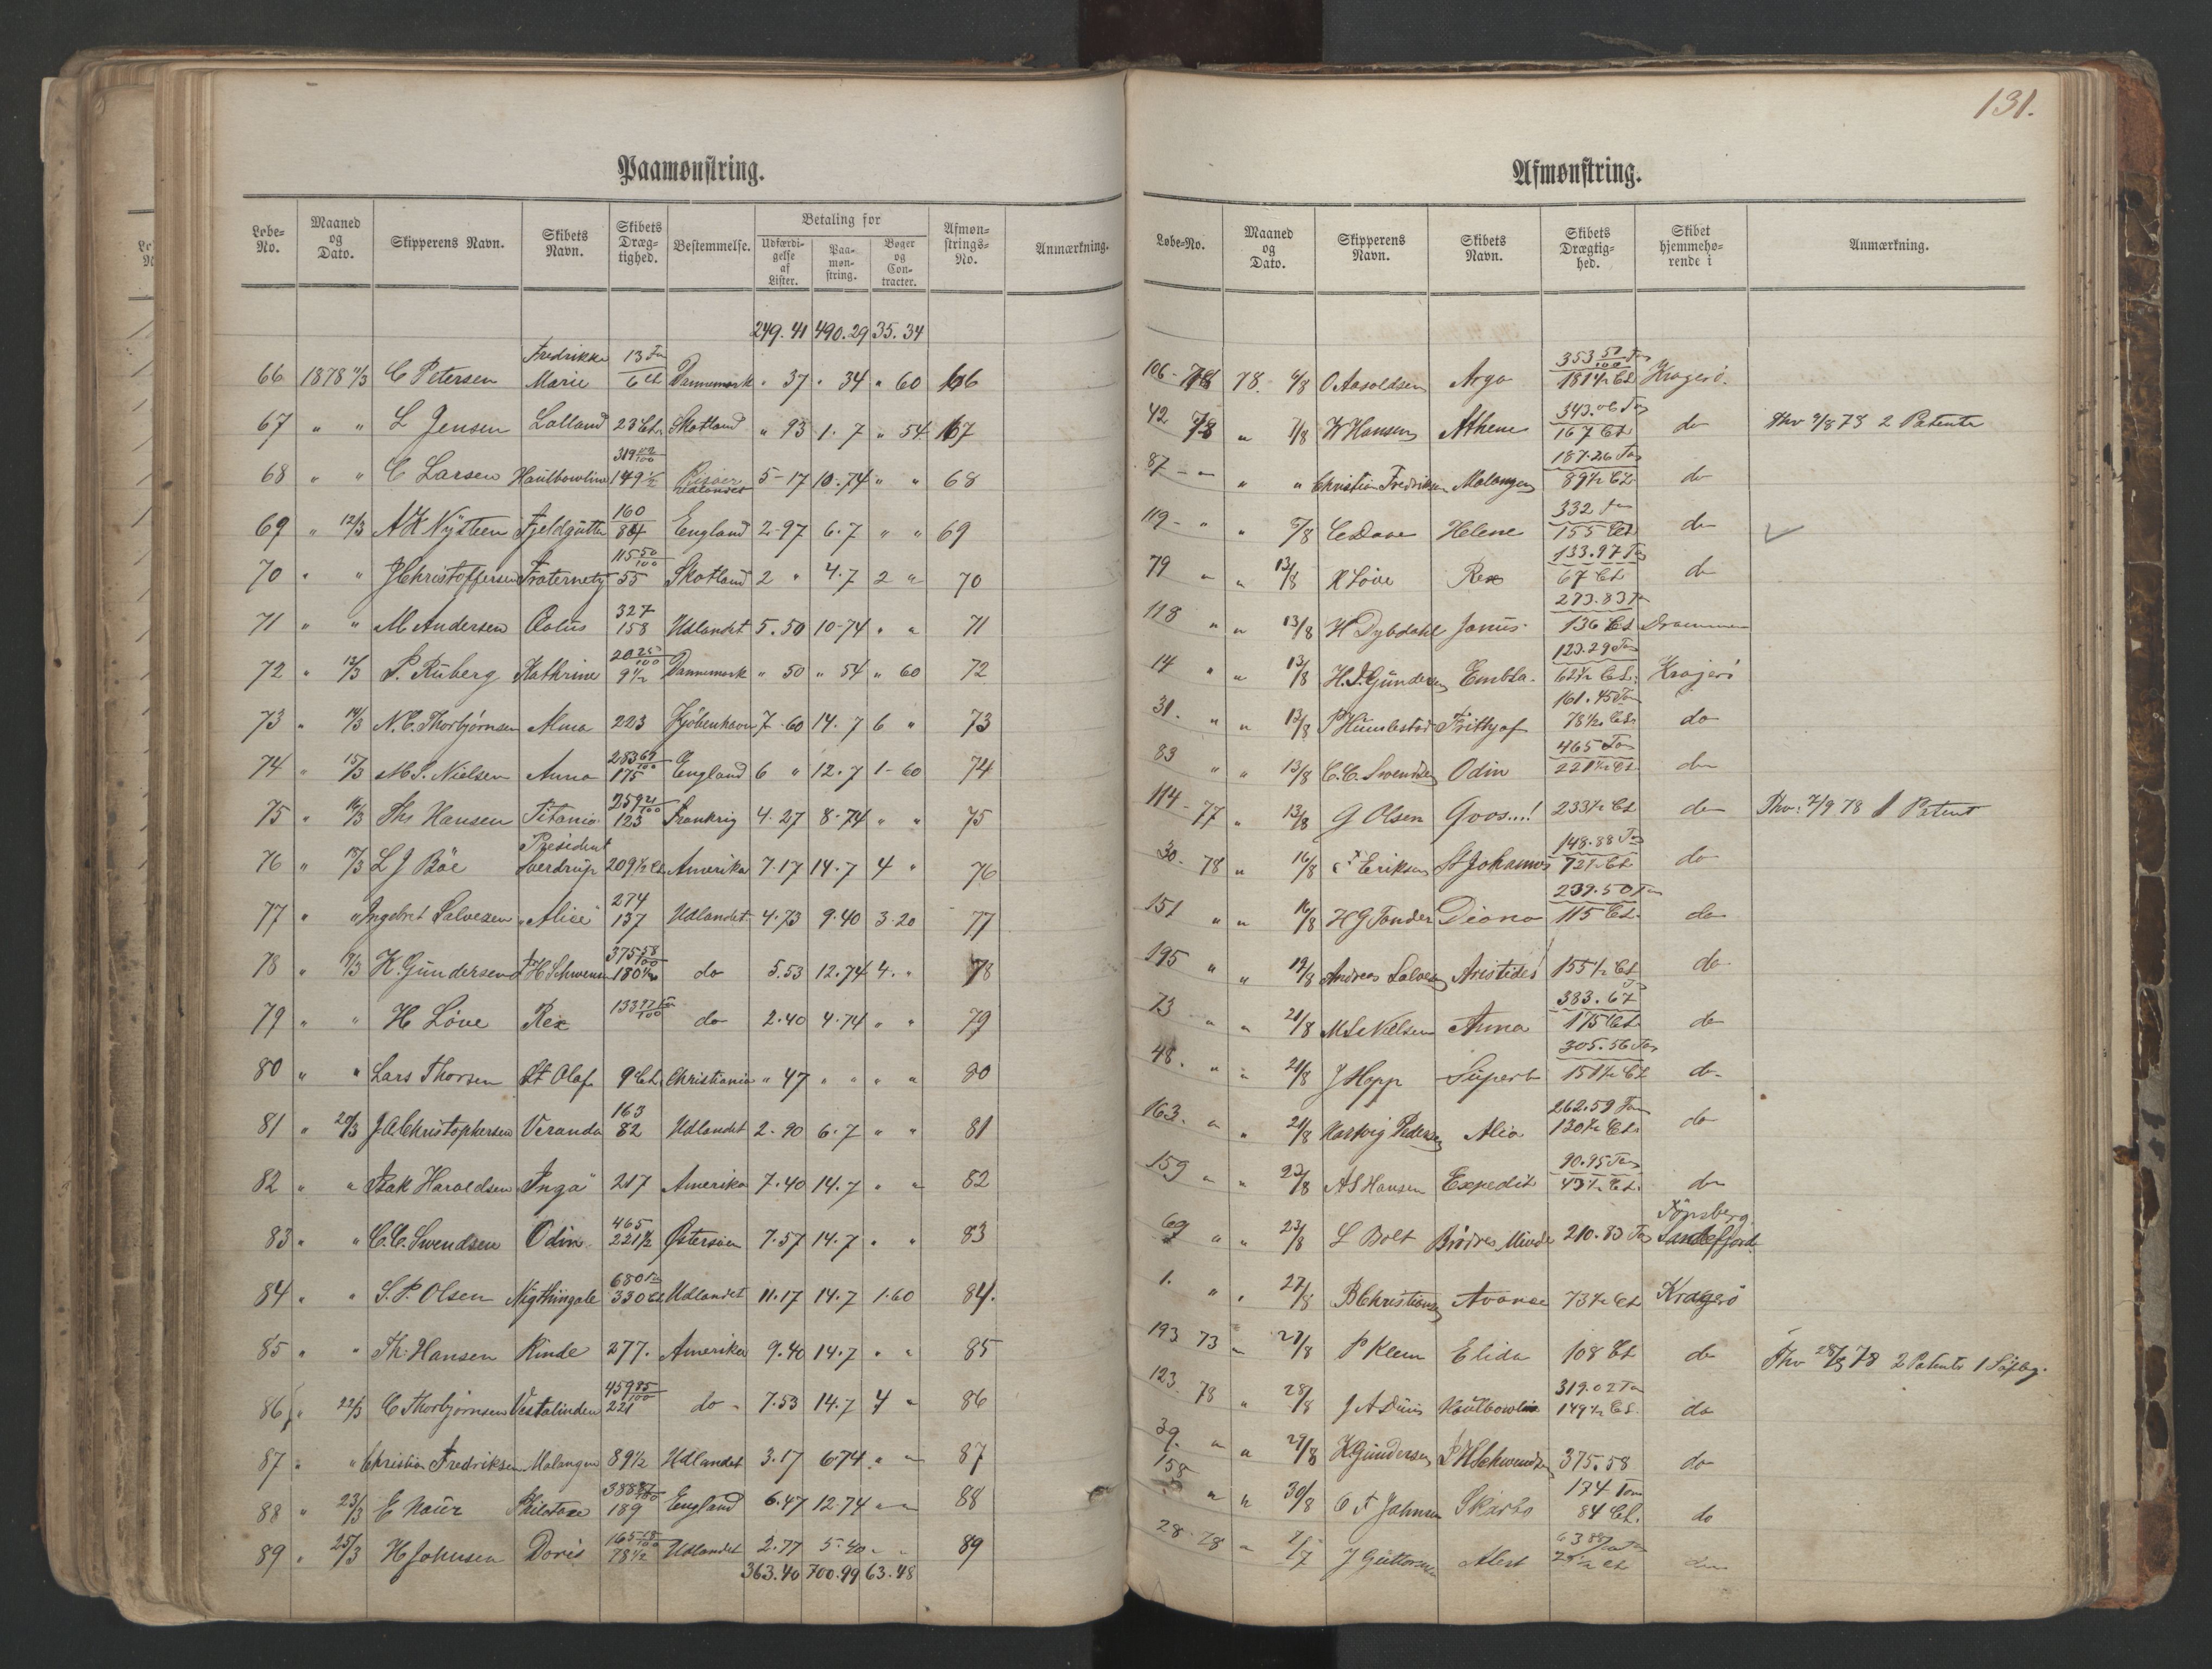 131.
Paamønstring.
Løbe-No. Maaned og Dato. Skipperens Navn. Skibets Navn. Skibets Dræg-tighed. Bestemmelse. Betaling for Udfærdi-gelse af Lister. Paa-møn-string. Bøger og Con-tracter. Afmøn-strings-No. Anmærkning.
249.41 490.29 35.34
66 1878 11/3 C Petersen Fredrikke Marie 13 Tn 6 Cl Dannemark " 37 " 34 " 60 66
67 " " L Jensen Lolland 23 Cl. Skotland " 93 1.7 " 54 67
68 " " C Larsen Haulbowline 319 02/100 149 1/2 Udlandet 5-17 10.74 " " 68
69 " 12/3 A K Nysteen Fjeldgutten 160 84 England 2-97 6.7 " " 69
70 " " J Christoffersen Fraternety 115 50/100 55 Skotland 2 " 4.7 2 " 70
71 " " M Andersen Oolus 327 158 Udlandet 5.50 10-74 " " 71
72 " 13/3 P. Ruberg Kathrine 20 25/100 9 1/2 Dannemark " 50 " 54 " 60 72
73 " 14/3 N.C. Thorbjørnsen Alma 223 Kjøbenhavn 7-60 14.7 6 " 73
74 " 15/3 M S. Nielsen Anna 283 67/100 175 England 6 " 12.7 1-60 74
75 " 16/3 Ths Hansen Titania 259 21/100 123 Frankrig 4.27 8-74 " " 75
76 " 18/3 L J Böe President Sverdrup 209 1/2 Cl Amerika 7.17 14.7 4 " 76
77 " " Ingebret Salvesen "Alice" 274 137 Udlandet 4.73 9.40 3.20 77
78 " 19/3 K. Gundersen P H Schwensen 375 58/100 180 1/2 do 5.53 12.74 4. " 78
79 " " H Löve Rex 133 97/100 Tn do 2.40 4.74 " " 79
80 " " Lars Thorsen St Olaf 9 Cl. Christiania " 47 " " " " 80
81 " 20/3 J A Christophersen Veranda 163 82 Udlandet 2.90 6.7 " " 81
82 " " Isak Haraldsen "Inga" 217 Amerika 7.40 14.7 " " 82
83 " " C.C. Swendsen Odin 465 221 1/2 Østersøen 7.57 14.7 " " 83
84 " " S.P. Olsen Nigthingale 680 Tn 330 Cl Udlandet 11.17 14.7 1.60 84.
85 " " Th: Hansen Rinde 277. Amerika 9.40 14.7 " " 85
86 " 22/3 C Thorbjørnsen Vestalinden 459 85/100 221 do 7.53 14.7 4 " 86
87 " " Christian Fredriksen Malangen 89 1/2 Udlandet 3.17 6.74 " " 87
88 " 23/3 E Naur Philotaxe 388 87/100 189 England 6.47 12.74 " " 88
89 " 25/3 H Johnsen Doris 165 18/100 78 1/2 Udlandet 2.77 5.40 " " 89
363.40 700.99 63.48
Afmønstring.
Løbe-No. Maaned og Dato. Skipperens Navn. Skibets Navn. Skibets Drægtig-hed. Skibet hjemmehø-rende i Anmærkning.
106-78 78. 6/8 O Aasoldsen Argo 353 50/100 Tns 181 1/2 Cl. Kragerö.
42 78 " 7/8 K Hansen Athene 343.06 Tns 167 Cl. do Thv 9/8 78 2 Patenter
87 - " " " Christian Fredriksen Malangen 187.26 Tns 89 1/2 Cl. do
119 - " " 5/8 C Dave Helene 332 Tns 155 Cl. do
79 " " 13/8 H Löve Rex 133.97 Tns 67 Cl. do
118 " " 13/8 H Dybdahl Janus 273.83 Tn 136 Cl. Drammen
14 " " 13/8 H.J. Gundersen Embla. 123.29 Tns 62 1/2 Cl. Kragerö
31. " " 13/8 P Humlestad Frithjof 161.45 Tn 78 1/2 Cl. do
83 " " 13/8 C.C. Swendsen Odin 465 Tns 221 1/2 Cl. do
114-77 " 13/8 G Olsen Goos...! 233 1/2 Cl. do Thv: 7/9 78 1 Patent
30-78 " 16/8 Eriksen St Johannes 148.88 Tns 72 1/2 Cl. do
151 " " 16/8 H G Tønder Diana 239.50 Tns 115 Cl. do
195 " " 19/8 Andreas Salvesen Aristides 155 1/2 Cl do
73 " " 21/8 M S Nielsen Anna 383.67 Ts 175 Cl. do
48. " " 21/8 J Hopp Superb 305.56 Tns 151 1/2 Cl do
163. " " 21/8 Hartvig Pedersen Alia 262.59 Tns 130 1/2 Cl. do
159 " " 23/8 A S Hansen Expedit 90.95 Tns 43 1/2 Cl. do
69 " " 23/8 L Bolt Brödres Minde 210.83 Tns Tönsberg Sandefjord
1. " " 27/8 B Christiansen Avance 73 1/2 Cl. Kragerö
193 73 " 27/8 P Klem Elida 108 Cl. do Thv 28/8 78 2 Patenter 1 Söfbog.
123. 78 " 28/8 J A Duus Haulbowline 319.02 Tn 149 1/2 Cl. do
39. " " 29/8 K Gundersen P H Schwensen 375.58 do
158 " " 30/8 O F Jahnsen 174 Tons 84 Cl. do
28-78 " 2/7 J Guttormsen Alert 63 88/100 Tns 29 1/2 Cl do